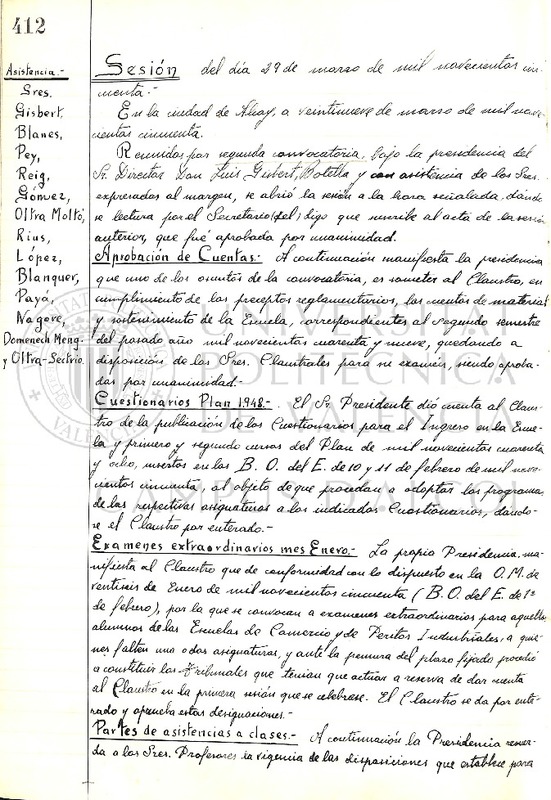 412
Asistencia.-
Sres.
Gisbert,
Blanes,
Pey,
Reig,
Gómez,
Oltra Moltó,
Rius,
López,
Blanquer,
Payá,
Nagore,
Domenech Meng-
y Oltra-Sectrio.
Sesión del día 29 de marzo de mil novecientos cin-
cuenta.-
En la ciudad de Alcoy, a veintinueve de marzo de mil nove-
cientos cincuenta.
Reunidos por segunda convocatoria, bajo la presidencia del
Sr. Director Don Luis Gisbert Botella y con asistencia de los Sres.
expresados al margen, se abrió la sesión a la hora señalada, dándo-
se lectura por el Secretario (del) digo que suscribe al acta de la sesión
anterior, que fué aprobada por unanimidad.
Aprobación de Cuentas.- A continuación manifiesta la presidencia
que uno de los asuntos de la convocatoria, es someter al Claustro, en
cumplimiento de los preceptos reglamentarios, las cuentas de material
y sostenimiento de la Escuela, correspondientes al segundo semestre
del pasado año mil novecientos cuarenta y nueve, quedando a
disposición de los Sres. Claustrales para su examen, siendo aproba-
das por unanimidad.-
Cuestionarios Plan 1.948.- El Sr. Presidente dió cuenta al Claus-
tro de la publicación de los Cuestionarios para el Ingreso en la Escue-
la y primero y segundo cursos del Plan de mil novecientos cuarenta
y ocho, insertos en los B. O. del E. de 10 y 11 de febrero de mil nove-
cientos cincuenta, al objeto de que procedan a adoptar los programas
de las respectivas asignaturas a los indicados Cuestionarios, dándo-
se el Claustro por enterado.-
Examenes extraordinarios mes Enero.- La propia Presidencia ma-
nifiesta al Claustro que de conformidad con lo dispuesto en la O.M. de
ventiseis de Enero de mil novecientos cincuenta (B.O. del E. de 1º
de febrero), por la que se convocan a examenes extraordinarios para aquellos
alumnos de las Escuelas de Comercio y de Peritos Industriales, a quie-
nes falten una o dos asignaturas, y ante la premura del plazo fijado procedió
a constituir los Tribunales que tenian que actuar a reserva de dar cuenta
al Claustro en la primera sesión que se celebrase. El Claustro se da por ente-
rado y aprueba estas designaciones.-
Partes de asistencias a clases.- A continuación la Presidencia recuer-
da a los Sres. Profesores la vigencia de las disposiciones que establece para
UNIVERSITAT
POLITÈCNICA
DE VALÈNCIA
CAMPUS D'ALCOI